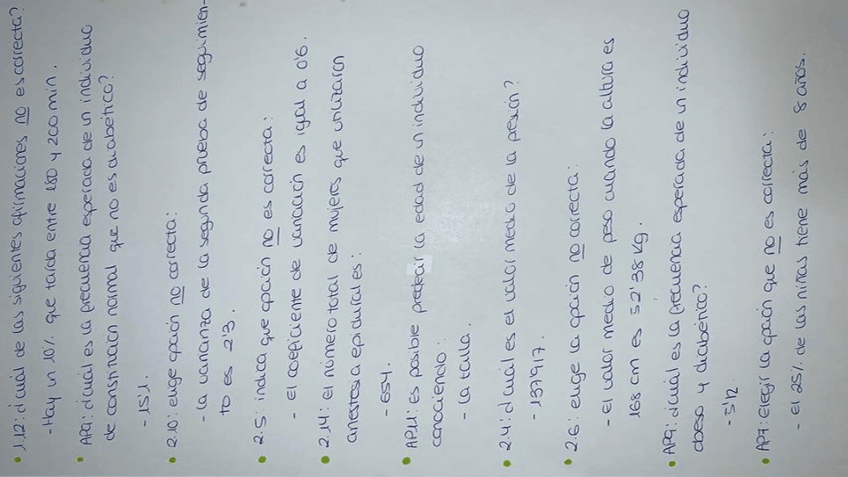 • 1.12: ¿cuál de las siguientes afirmaciones no es correcta?
- Hay un 10% que tarda entre 180 y 200 min.
• AP9: ¿cuál es la frecuencia esperada de un individuo
de constitución normal que no es diabético?
- 15'1.
• 2.10: elige opción no correcta:
- la varianza de la segunda prueba de seguimien-
to es 2'3.
• 2.5: indica que opción no es correcta:
- El coeficiente de variación es igual a 0'6.
• 2.14: El número total de mujeres que utilizaron
anestesia epidural es:
- 654.
• AP.11: es posible predecir la edad de un individuo
conociendo:
- la talla.
• 2.4: ¿cuál es el valor medio de la presión?
- 137'917.
• 2.6: elige la opción no correcta:
- El valor medio de peso cuando la altura es
168 cm es 52'38 Kg.
• AP9: ¿cuál es la frecuencia esperada de un individuo
obeso y diabético?
- 5'12.
• AP7: Elegir la opción que no es correcta:
- El 25% de las niñas tiene más de 8 años.